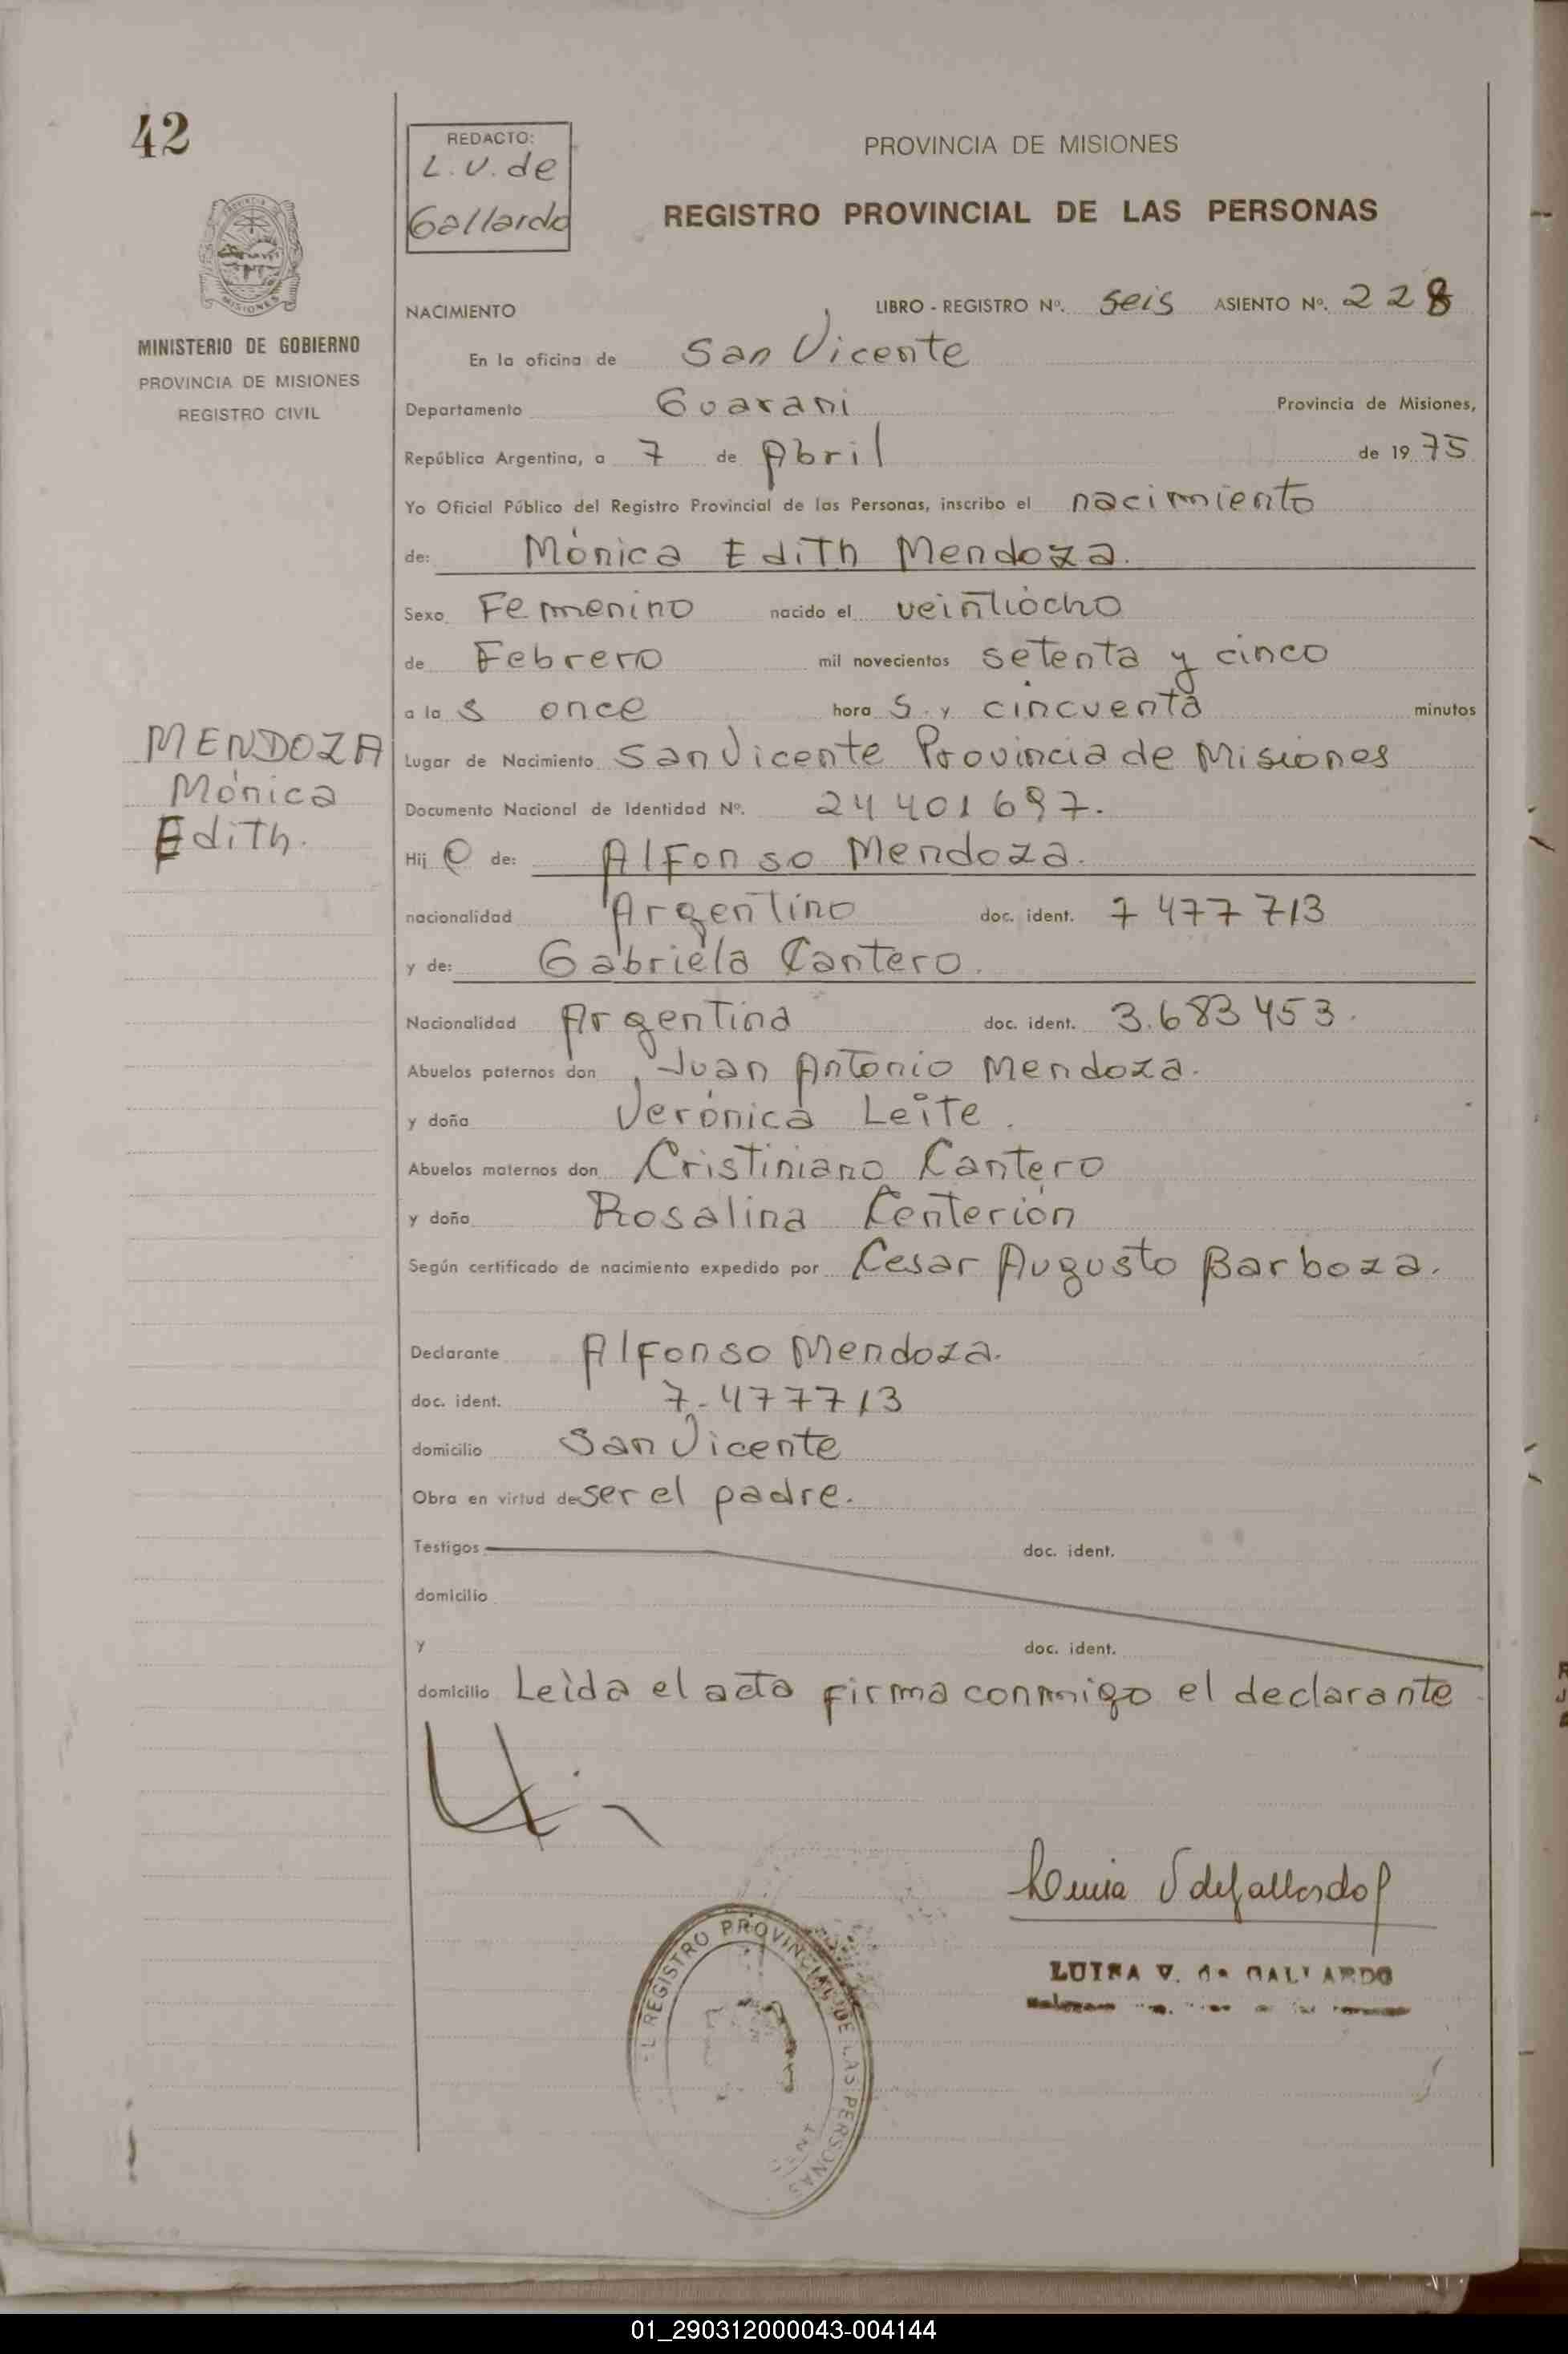 42
REDACTO:
L.V. de
Gallardo
PROVINCIA DE MISIONES
REGISTRO PROVINCIAL DE LAS PERSONAS
MISIONES
MINISTERIO DE GOBIERNO
PROVINCIA DE MISIONES
REGISTRO CIVIL
NACIMIENTO LIBRO - REGISTRO Nº. seis ASIENTO Nº. 228
En la oficina de San Vicente
Departamento Guarani Provincia de Misiones,
República Argentina, a 7 de Abril de 1975
Yo Oficial Público del Registro Provincial de las Personas, inscribo el nacimiento
de: Mónica Edith Mendoza.
Sexo Femenino nacido el veintiocho
de Febrero mil novecientos setenta y cinco
a las once horas y cincuenta minutos
MENDOZA
Mónica
Edith.
Lugar de Nacimiento San Vicente Provincia de Misiones
Documento Nacional de Identidad Nº. 24401697.
Hij@ de: Alfonso Mendoza.
nacionalidad Argentino doc. ident. 7477713
y de: Gabriela Cantero.
Nacionalidad Argentina doc. ident. 3.683453.
Abuelos paternos don Juan Antonio Mendoza.
y doña Verónica Leite.
Abuelos maternos don Cristiniano Cantero
y doña Rosalina Centerión
Según certificado de nacimiento expedido por Cesar Augusto Barboza.
Declarante Alfonso Mendoza.
doc. ident. 7.477713
domicilio San Vicente
Obra en virtud de ser el padre.
Testigos doc. ident.
domicilio
y doc. ident.
domicilio Leída el acta firma conmigo el declarante
Luisa V de Gallardo
LUISA V. de GALLARDO
REGISTRO PROVINCIAL DE LAS PERSONAS
01_290312000043-004144